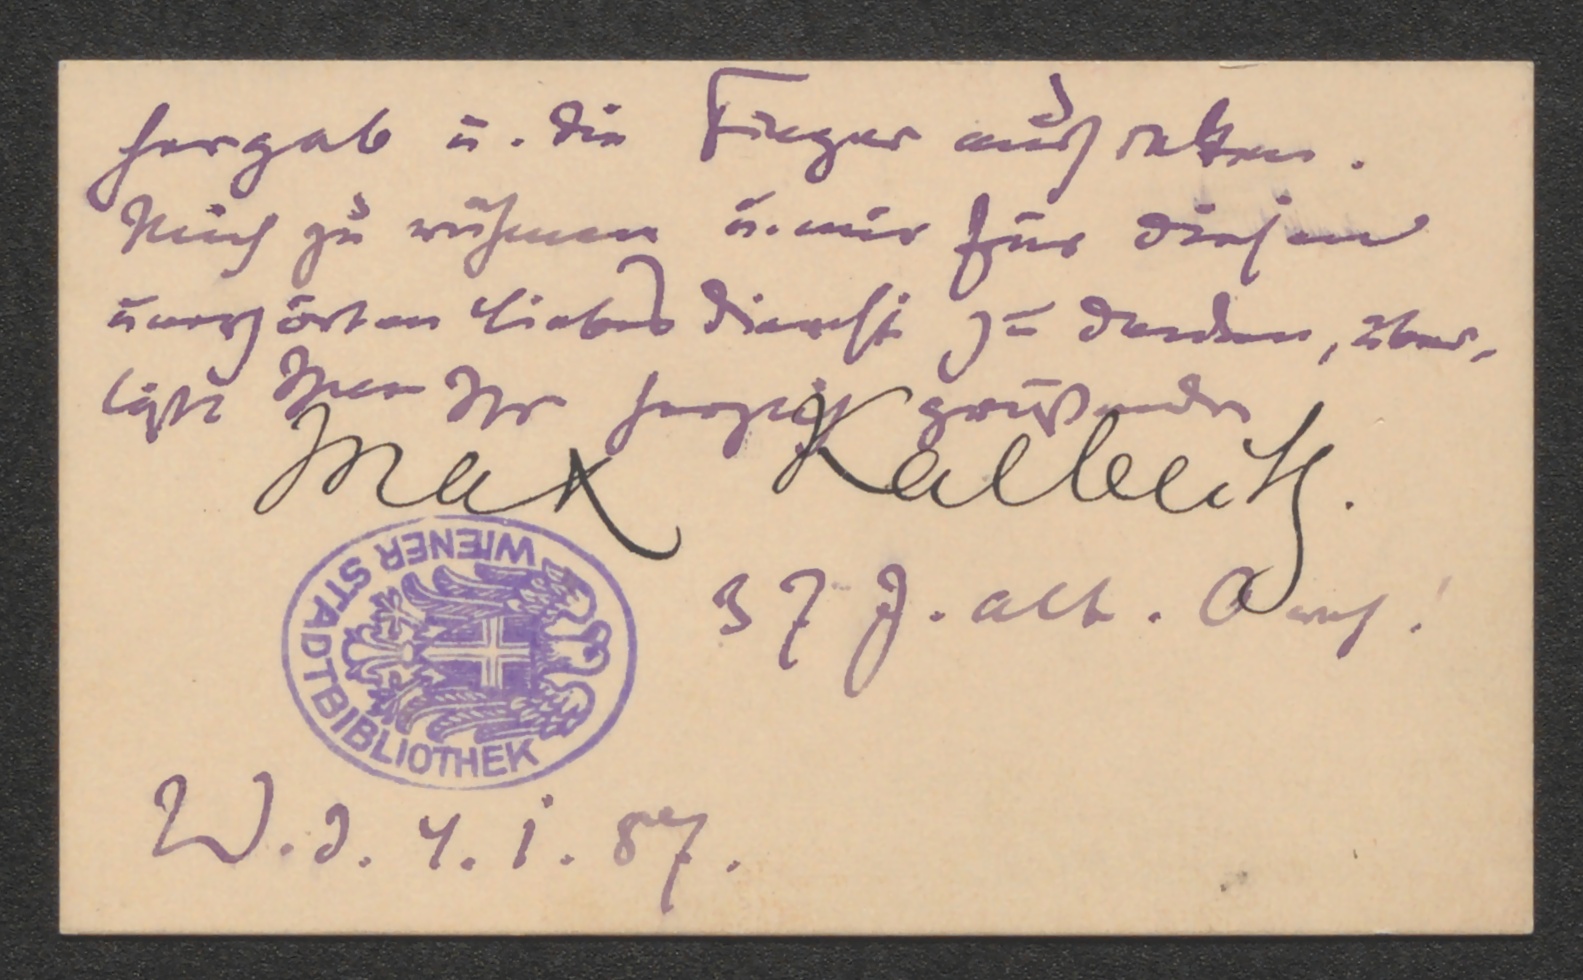 hergab u. die Finger ausstrecken.
Mich zu rühmen u. mir für diesen
unerhörten Liebesdienst zu danken, über-
läßt Ihnen Ihr herzlich grüßender
Max Kalbeck.
37 J. alt. Auch!
WIENER STADTBIBLIOTHEK
W. d. 4. 1. 87.